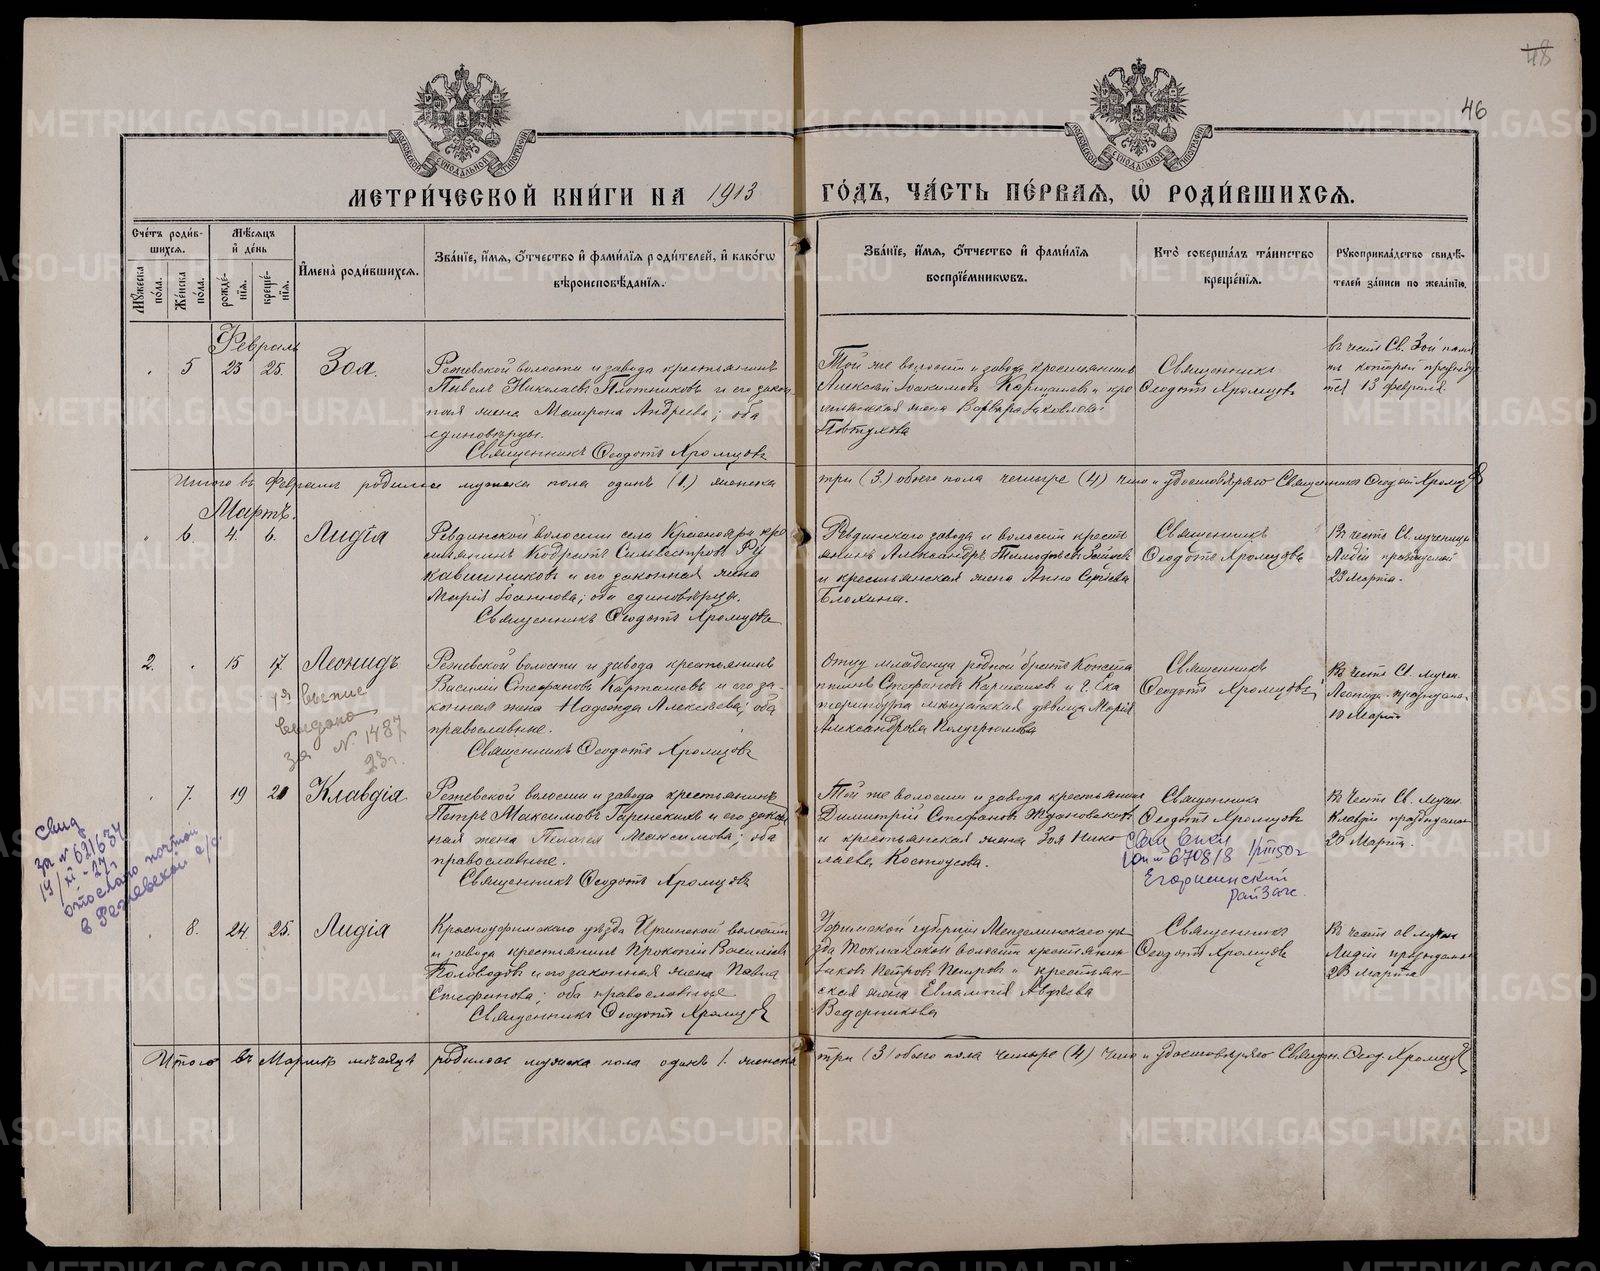 48
46
МОСКОВСКОЙ СѴНОДАЛЬНОЙ ТИПОГРАФІИ
МОСКОВСКОЙ СѴНОДАЛЬНОЙ ТИПОГРАФІИ
МЕТРИ́ЧЕСКОЙ КНИ́ГИ НА 1913 ГО́ДЪ, ЧА́СТЬ ПЕ́РВАЯ, Ѡ҆ РОДИ́ВШИХСЯ.
Сче́тъ роди́в-
шихся.
Мѣ́сяцъ
и҆ де́нь
Мꙋ́жеска по́ла.
Же́нска по́ла.
рожде́-
нїя.
креще́-
нїя.
И҆мена̀ роди́вшихся.
Зва́нїе, и҆́мя, ѻ҆́тчество и҆ фами́лїя роди́телей, и҆ како́гѡ
вѣроисповѣ́данїя.
Зва́нїе, и҆́мя, ѻ҆́тчество и҆ фами́лїя
воспрїе́мникѡвъ.
Кто̀ соверша́лъ та́инство
креще́нїя.
Рꙋкоприкла́дство свидѣ́-
телей за́писи по жела́нїю.
Февраль
5 23 25. Зоя.
Режевской волости и завода крестьянинъ
Павелъ Николаевъ Плотниковъ и его закон
ная жена Матрона Андреева; оба
единовѣрцы.
Священникъ Ѳеодотъ Хромцовъ
Той же волости и завода крестьянинъ
Алексѣй Іоакимовъ Карташевъ и кре
стьянская жена Варвара Іаковлева
Пѣтухова
Священникъ
Ѳеодотъ Хромцовъ
въ честь Св. Зои
которой празднуе
тся 13 февраля.
Итого въ Февралѣ родилось мужска пола одинъ (1) женска три (3) обоего пола четыре (4) что и удостовѣряю Священникъ Ѳеодотъ Хромцов
Мартъ.
6. 4. 6. Лидія
Ревдинской волости села Краснояра кре
стьянинъ Кодратъ Сильвестровъ Ру
кавишниковъ и его законная жена
Марія Іоаннова; оба единовѣрцы.
Священникъ Ѳеодотъ Хромцовъ
Ревдинскаго завода и волости кресть
янинъ Александръ Тимофѣевъ Зайцевъ
и крестьянская жена Анна Сергѣева
Блохина.
Священникъ
Ѳеодотъ Хромцовъ
Въ честь Св. мученицы
Лидіи празднуемой
23 Марта.
2. 15 17. Леонидъ
1я выпис
выдана
за N. 1487
23 г.
Режевской волости и завода крестьянинъ
Василій Стефановъ Карташевъ и его за-
конная жена Надежда Алексѣева; оба
православные.
Священникъ Ѳеодотъ Хромцовъ
Отцу младенца родной братъ Конста
нтинъ Стефановъ Карташевъ и г. Ека
теринбурга мѣщанская дѣвица Марія
Александрова Полугрюмова
Священникъ
Ѳеодотъ Хромцовъ
Въ честь Св. мучен.
Леонида празднуема
10 Марта
7. 19 20 Клавдія
Режевской волости и завода крестьянинъ
Петръ Максимовъ Гаренскихъ и его закон
ная жена Пелагея Максимова; оба
православные.
Священникъ Ѳеодотъ Хромцовъ
Той же волости и завода крестьянинъ
Димитрій Стефановъ Ждановскихъ
и крестьянская жена Зоя Нико
лаева Костоусова.
Священникъ
Ѳеодотъ Хромцовъ
Въ честь Св. мучен.
Клавдіи празднуема
20 Марта.
Егоршинский
райЗагс.
свид
за N 621634
19/XI-27
отослано почтой
в Режевской с/с
8. 24. 25. Лидія
Красноуфимскаго уѣзда Иргинской волости
и завода крестьянинъ Прокопій Васильевъ
Половодовъ и его законная жена Павла
Стефанова; оба православные
Священникъ Ѳеодотъ Хромцов
Уфимской губерніи Мензелинскаго уѣ
зда Токмакской волости крестьянинъ
Іаковъ Петровъ Петровъ и крестьян-
ская жена Евлампія Авдѣева
Ведерникова
Священникъ
Ѳеодотъ Хромцовъ
Въ честь св мучен
Лидіи празднуем
23 Марта
Итого въ Мартѣ мѣсяцѣ родилось мужска пола одинъ 1. женска три (3) обоего пола четыре (4) что и удостовѣряю Священ. Ѳеод. Хромцов
METRIKI.GASO-URAL.RU